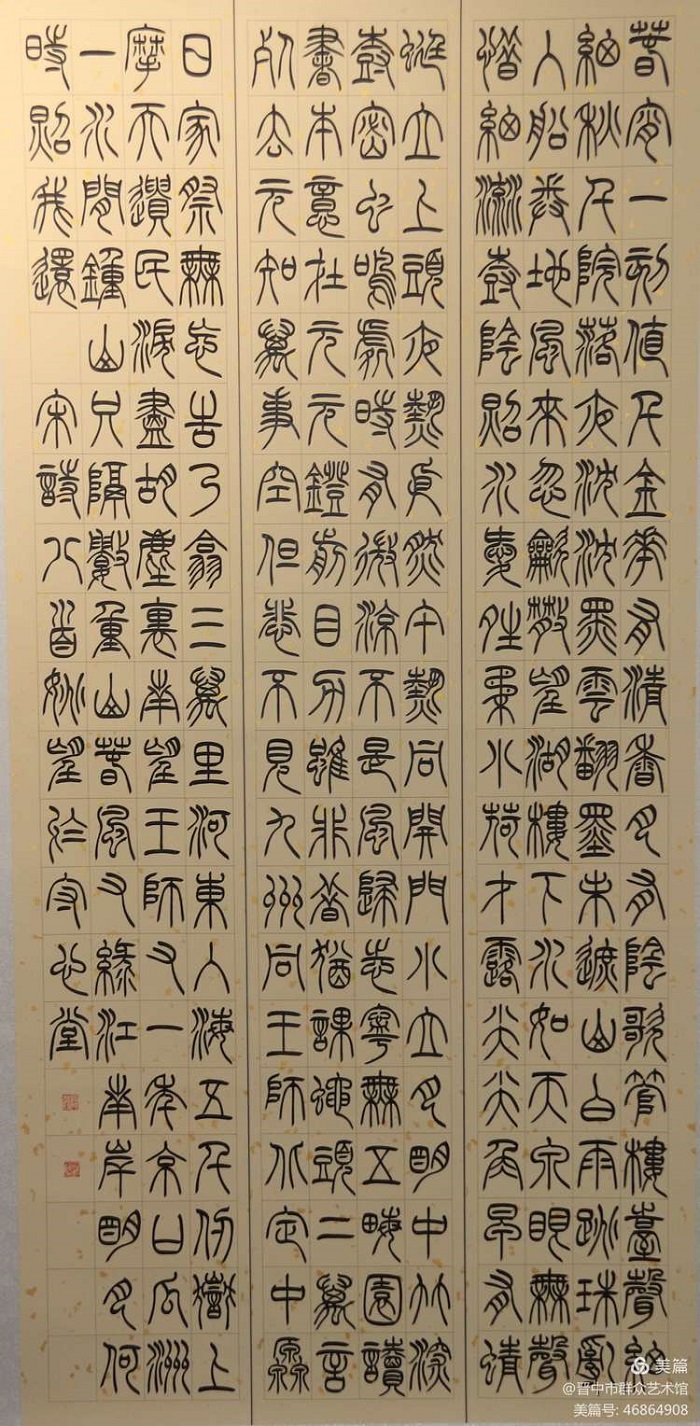 春宵一刻值千金花有清香月有陰歌管樓臺聲細
細秋千院落夜沈沈黑雲翻墨未遮山白雨跳珠亂
入船卷地風來忽吹散望湖樓下水如天泉眼無聲
惜細流樹陰照水愛晴柔小荷才露尖尖角早有蜻
蜓立上頭夜熱依然午熱同開門小立月明中竹深
樹密虫鳴處時有微涼不是風歸志寧無五畝園讀
書本意在元元鐙前目力雖非昔猶課蠅頭二萬言
死去元知萬事空但悲不見九州同王師北定中原
日家祭無忘告乃翁三萬里河東入海五千仞嶽上
摩天遺民淚盡胡塵裏南望王師又一年京口瓜洲
一水間鍾山只隔數重山春風又綠江南岸明月何
時照我還 宋詩八首姚望於守心堂
美篇
@晋中市群众艺术馆
美篇号: 46864908